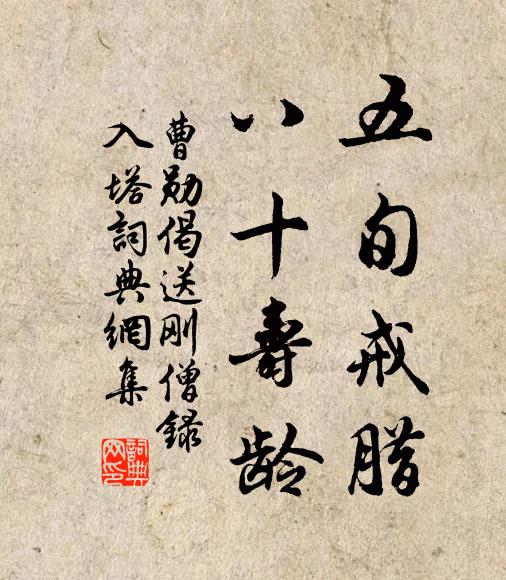 五旬戒腊
八十壽龄
曹勛偈送刚僧録
入塔詞典網集
詞典网印